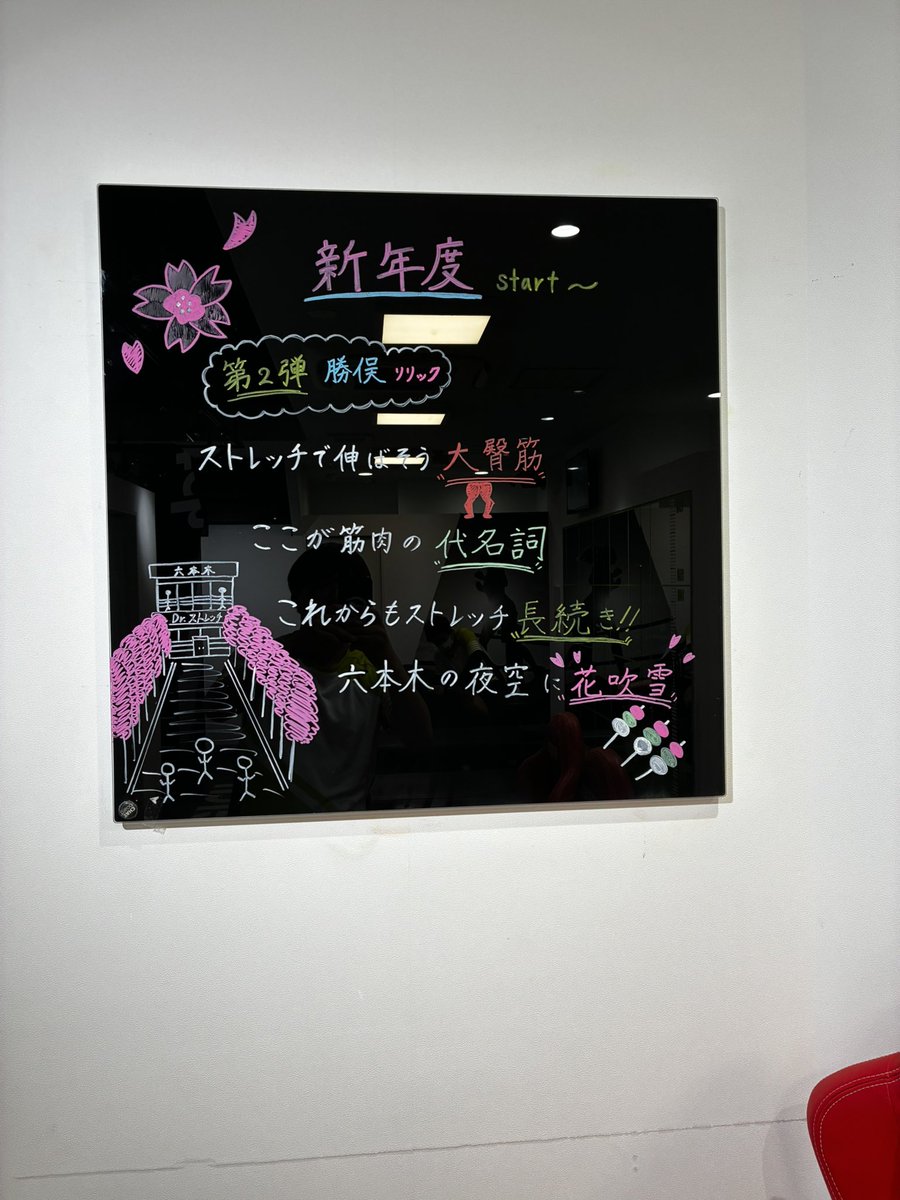 新年度 start～
第2弾 勝俣 リリック
ストレッチで伸ばそう 大臀筋
ここが筋肉の 代名詞
これからもストレッチ 長続き!!
六本木の夜空に 花吹雪
六本木
Dr.ストレッチ